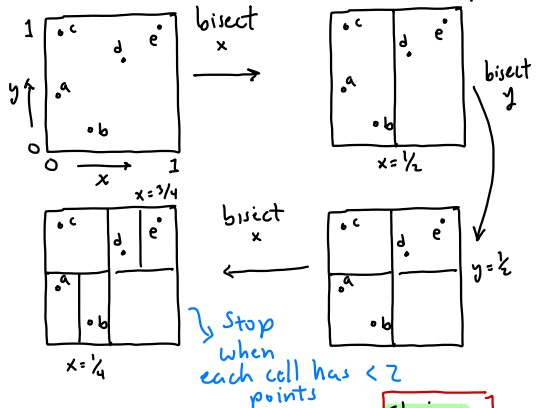 1
c
d
e
a
b
y
0
0
x
1
bisect
x
c
d
e
a
b
x=1/2
bisect
y
c
d
e
a
b
y=1/2
bisect
x
x=3/4
c
d
e
a
b
x=1/4
Stop
when
each cell has < 2
points